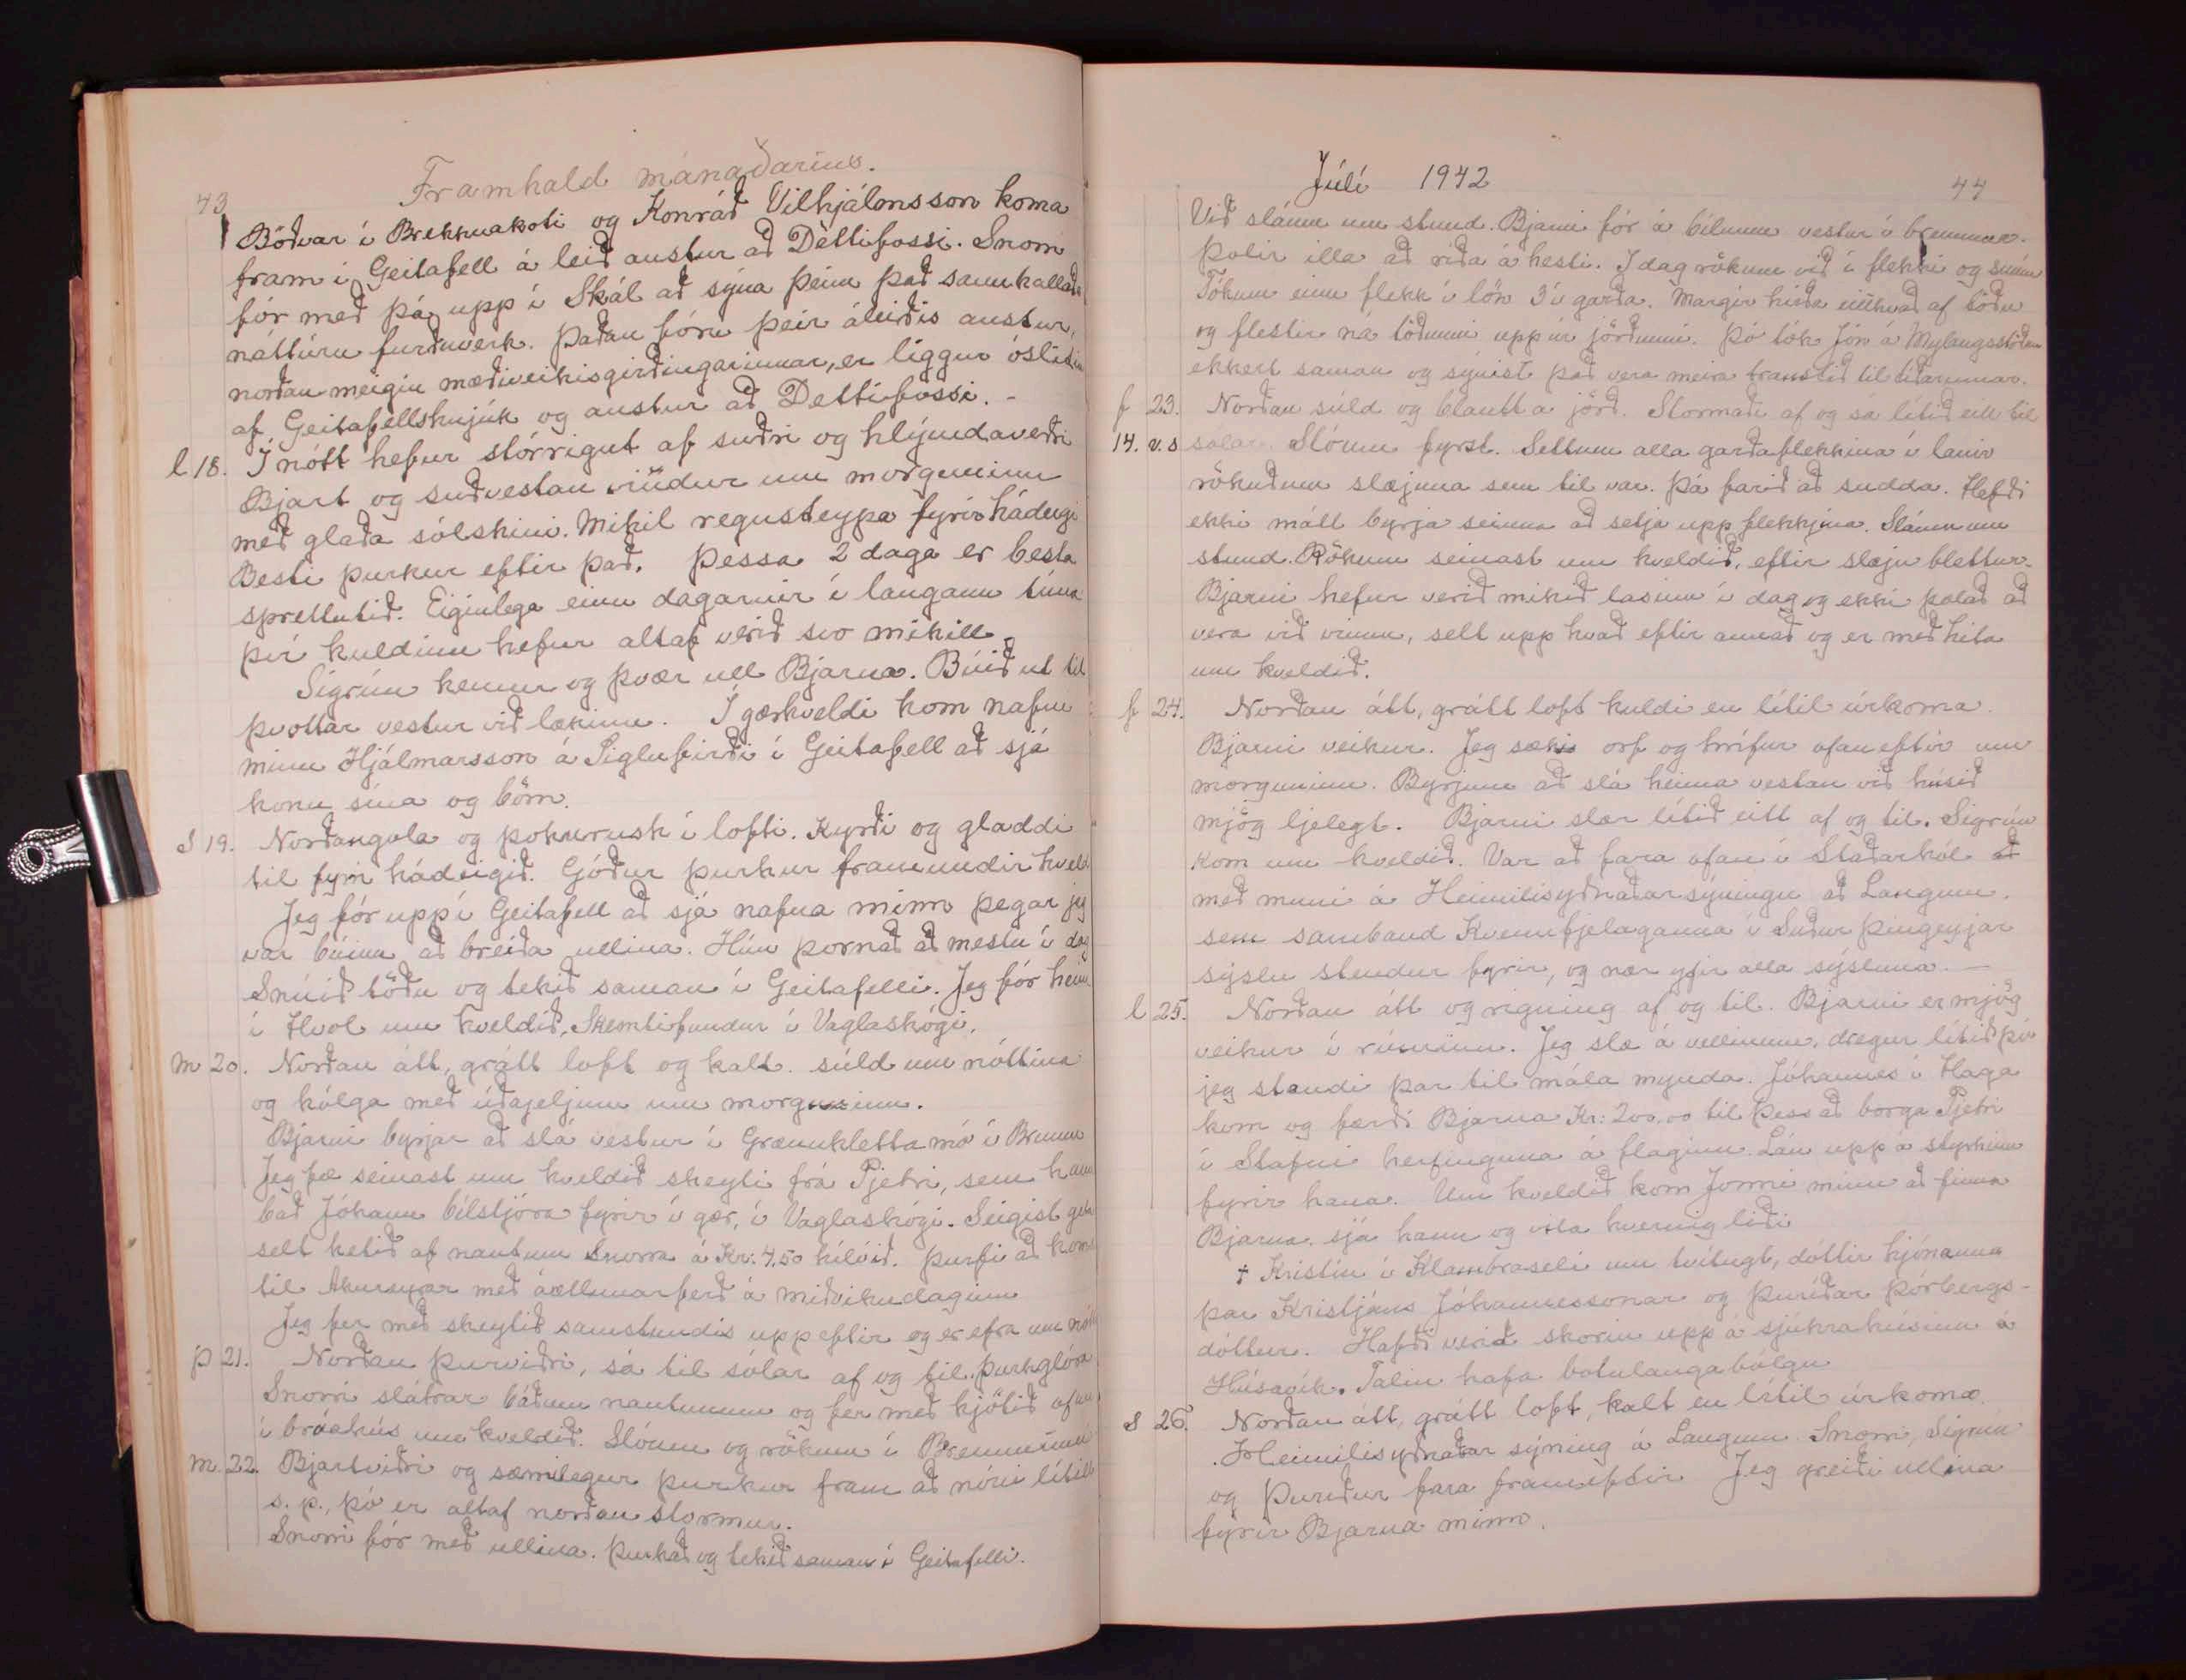 Framhald mánaðarins.
43
Böðvar í Brekknakoti og Konráð Vilhjálmsson koma
fram í Geitafell á leið austur að Dettifossi. Snorri
fór með þá upp í Skál að sýna þeim það samkallaða
náttúru furðuverk. Þaðan fóru þeir áleiðis austur,
norðan meigin mæðiveikisgirðingarinnar, er liggur óslitin
af Geitafellshnjúk og austur að Dettifossi. -
l 18. Í nótt hefur stórrignt af suðri og hlýindaveðri
Bjart og suðvestan vindur um morguninn
með glaða sólskini. Mikil regnsteypa fyrir hádegi
Besti þurkur eftir það. Þessa 2 daga er besta
sprettutið. Eiginlega einu dagarnir í langann tíma
því kuldinn hefur altaf verið svo mikill.
Sigrún kemur og þvær ull Bjarna. Búið ut til
þvottar vestur við lækinn. Í gærkveldi kom nafni
minn Hjálmarsson á Siglufirði í Geitafell að sjá
konu sína og börn.
S 19. Norðangola og þokurusk í lofti. Kyrði og gladdi
til fyrir hádeigið. Góður þurkur framundir kveld
Jeg fór upp í Geitafell að sjá nafna minn þegar jeg
var búinn að breiða ullina. Hún þornað að mestu í dag
Snúið töðu og tekið saman í Geitafelli. Jeg fór heim
í Hvol um kveldið. Skemtifundur í Vaglaskógi.
m 20. Norðan átt, grátt loft og kalt. súld um nóttina
og hólga með úðajeljum um morguninn.
Bjarni byrjar að slá vestur í Grænukletta mó í Brunum
Jeg fæ seinast um kveldið skeyti frá Pjetri, sem hann
bað Jóhann bílstjóra fyrir í gær, í Vaglaskógi. Seigist geta
selt ketið af nautum Snorra á Kr: 4.50 kílóið. Þurfi að koma
til Akureyrar með áætlunarferð á miðvikudaginn
Jeg fer með skeytið samstundis uppeftir og er efra um nótt
þ 21. Norðan þurviðri, sá til sólar af og til. Þurkglóra
Snorri slátrar báðum nautunum og fer með kjötið ofan
í bráðhús um kveldið. Slóum og rökum í Brennunni
m. 22. Bjartviðri og sæmilegur þurkur fram að nóni lítill
s. p., þó er altaf norðan stormur.
Snorri fór með ullina. Þurkað og tekið saman í Geitafelli.
Júlí 1942
44
Við sláum um stund. Bjarni fór á bílnum vestur í brennuna.
Þolir illa að ríða á hesti. Í dag rökum við í flekki og snúum
Tökum einn flekk í lön 3 í garða. Margir hirða eitthvað af töðu
og flestir na töðunni uppúr jörðunni. Þó tók Jón á Mýlaugsstöðum
ekkert saman og sýnist það vera meira traustið til tíðarinnar.
f 23. Norðan súld og blautt a jörð. Stormaði af og sá lítið eitt til
14. v. s sólar. Slóum fyrst. Settum alla garðaflekkina í lanir
rökuðum slæjuna sem til var. Þá farið að sudda. Hefði
ekki mátt byrja seinna að setja upp flekkjina. Sláum um
stund. Rökum seinast um kveldið, eftir slæju blettur.
Bjarni hefur verið mikið lasinn í dag og ekki þolað að
vera við vinnu, selt upp hvað eftir annað og er með hita
um kveldið.
f 24. Norðan átt, grátt loft kuldi en lítil úrkoma.
Bjarni veikur. Jeg sæki orf og hrífur ofan eftir um
morguninn. Byrjum að slá heima vestan við húsið
mjög ljelegt. Bjarni slær lítið eitt af og til. Sigrún
kom um kveldið. Var að fara ofan í Staðarhól að
með muni á Heimilisyðnaðarsýningu að Laugum.
sem samband Kvennfjelaganna í Suður Þingeyjar
sýslu stendur fyrir, og nær yfir alla sýsluna. —
l 25. Norðan átt og rigning af og til. Bjarni er mjög
veikur í rúminu. Jeg slæ á vellinum, dregur lítið þó
jeg standi þar til mála mynda. Jóhannes í Haga
kom og færði Bjarna Kr: 200,00 til þess að borga Pjetri
í Stafni herfinguna á flaginu. Lán upp á styrkinn
fyrir hana. Um kveldið kom Jonni minn að finna
Bjarna. sjá hann og vita hvernig liði
† Kristín í Klambraseli um tvítugt, dóttir hjónanna
þar Kristjáns Jóhannessonar og Þuríðar Þórbergs-
dóttur. Hafði verið skorin upp á sjúkrahúsinu á
Húsavík. Talin hafa botnlangabólgu
S 26. Norðan átt, grátt loft, kalt en lítil úrkoma.
Heimilisyðnaðar sýning á Laugum. Snorri, Sigrún
og Þuríður fara frameftir. Jeg greiði ullina
fyrir Bjarna minn.